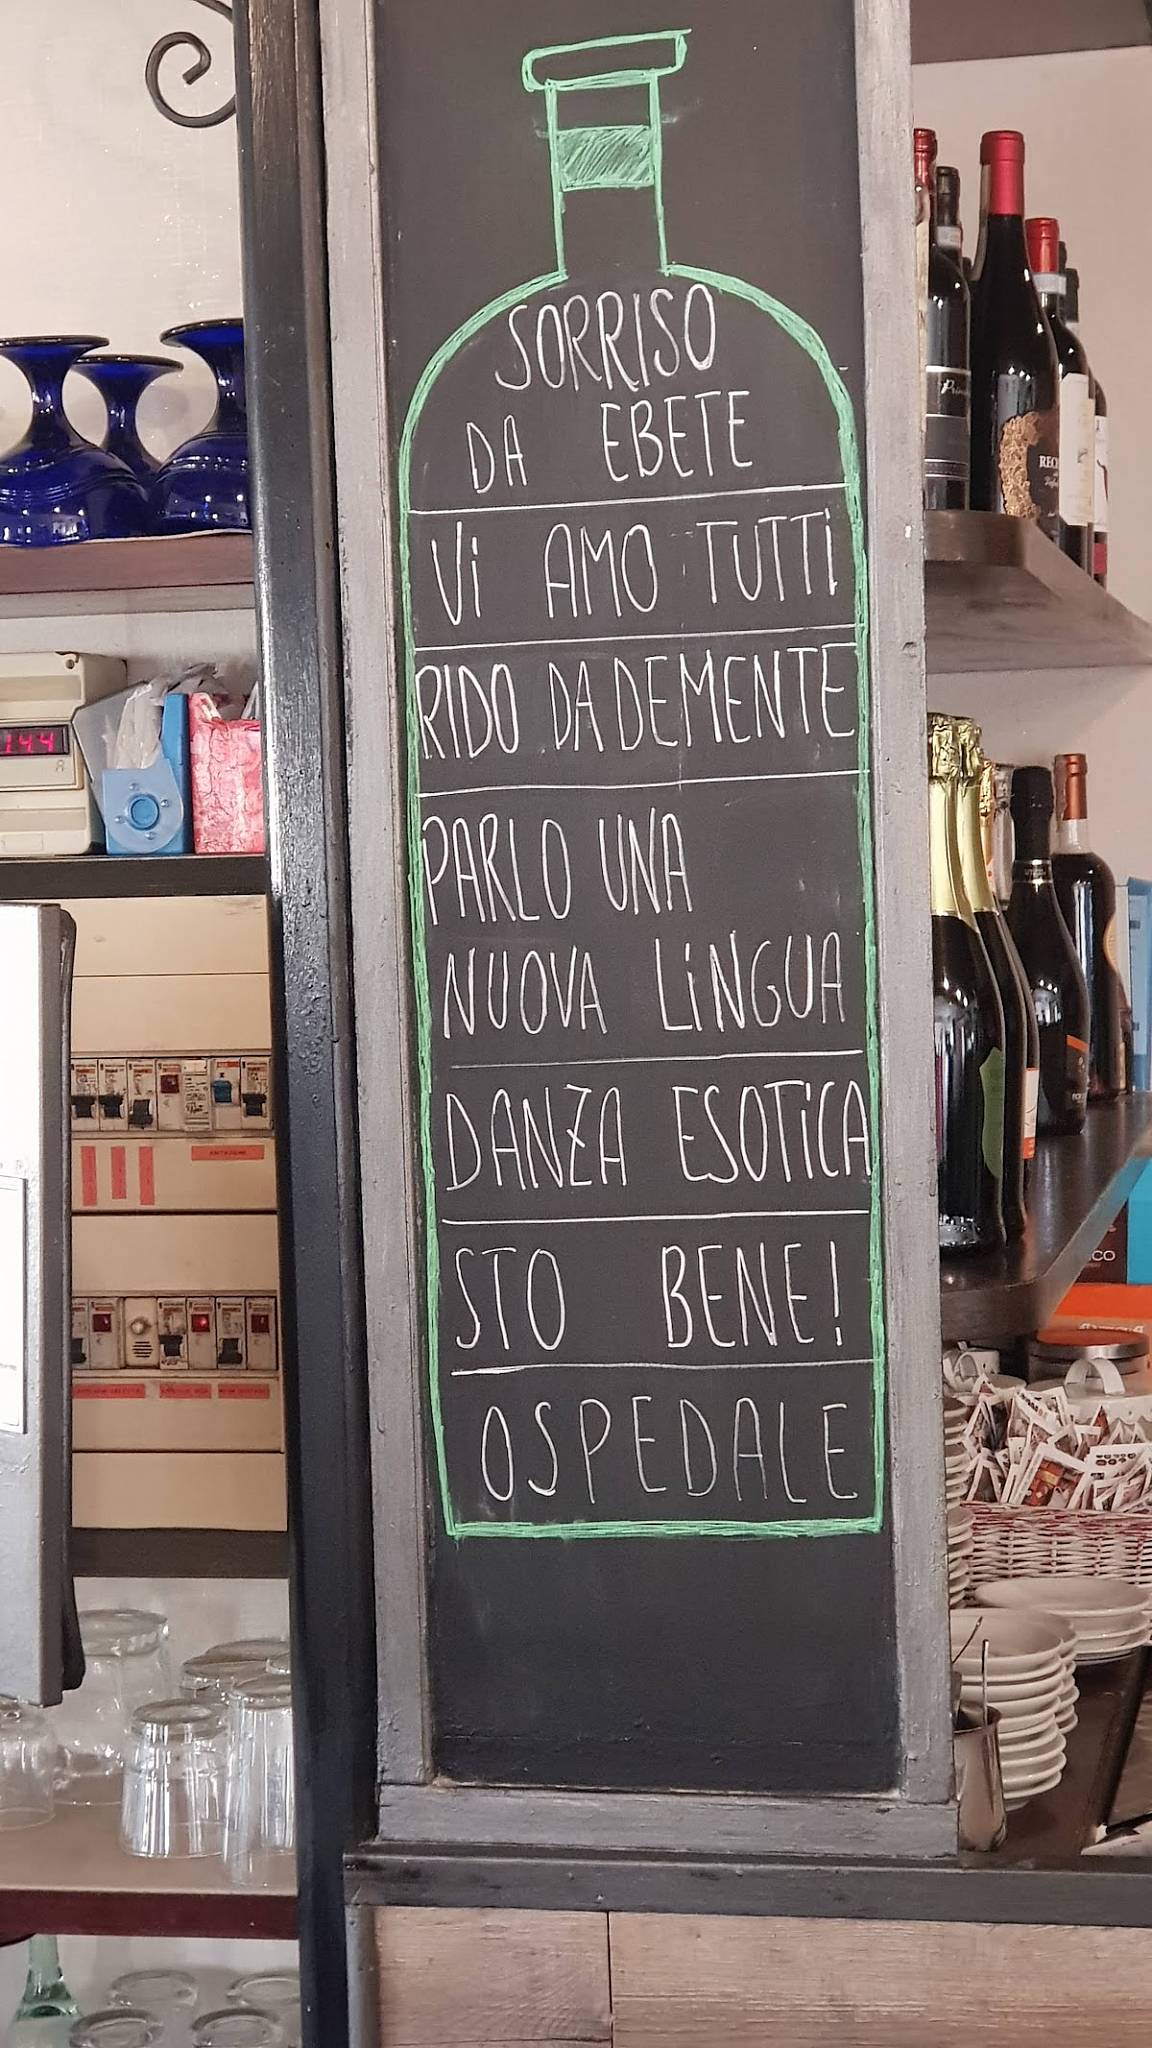 SORRISO
DA EBETE
Vi AMO TUTTi
RIDO DA DEMENTE
PARLO UNA
NUOVA LiNGUA
DANZA ESOTiCA
STO BENE!
OSPEDALE
144